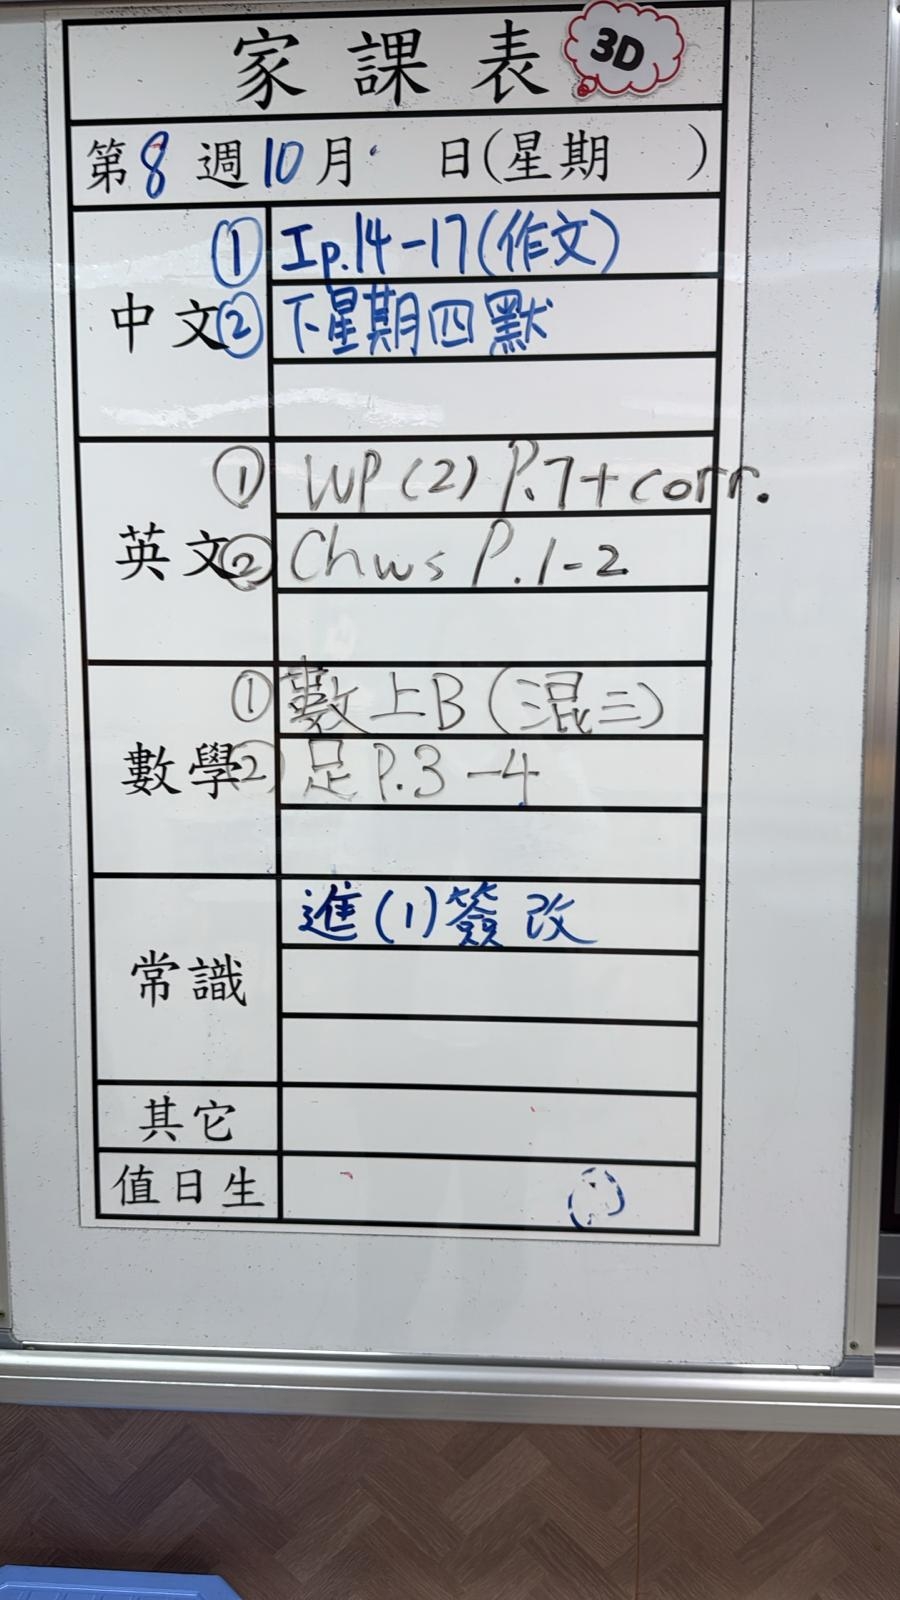 家課表 3D
第8週10月 日(星期 )
中文
① Ip.14-17(作文)
② 下星期四默
英文
① WP(2) P.7+corr.
② Chws P.1-2
數學
① 數上B(混三)
② 足P.3-4
常識
進(1)簽改
其它
值日生